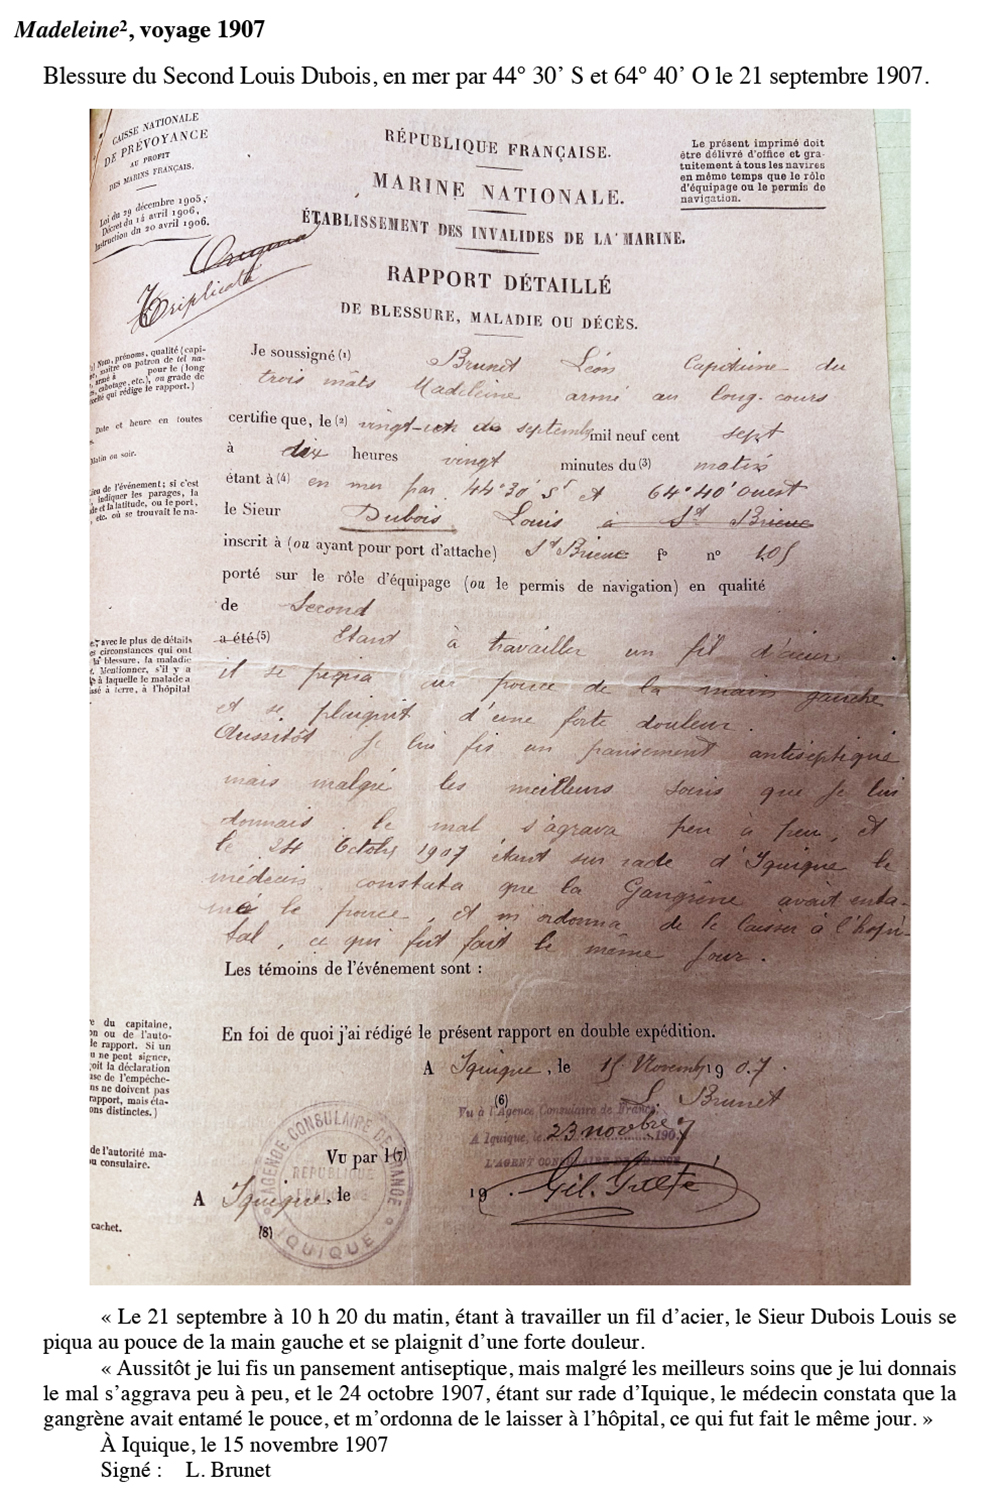 Madeleine², voyage 1907
Blessure du Second Louis Dubois, en mer par 44° 30’ S et 64° 40’ O le 21 septembre 1907.
CAISSE NATIONALE
DE PRÉVOYANCE
AU PROFIT
DES MARINS FRANÇAIS.
Loi du 29 décembre 1905,
Décret du 14 avril 1906,
Instruction du 20 avril 1906.
RÉPUBLIQUE FRANÇAISE.
MARINE NATIONALE.
ÉTABLISSEMENT DES INVALIDES DE LA MARINE.
Le présent imprimé doit
être délivré d'office et gra-
tuitement à tous les navires
en même temps que le rôle
d'équipage ou le permis de
navigation.
Original
Triplicata
RAPPORT DÉTAILLÉ
DE BLESSURE, MALADIE OU DÉCÈS.
Nom, prénoms, qualité (capi-
maître ou patron de tel na-
armé à pour le (long
cabotage, etc.), ou grade de
qui rédige le rapport.)
Date et heure en toutes
Matin ou soir.
Lieu de l'événement; si c'est
indiquer les parages, la
de et la latitude, ou le port,
etc. où se trouvait le na-
Je soussigné (1) Brunet Léon Capitaine du
trois mâts Madeleine armé au long-cours
certifie que, le (2) vingt-un de septemb mil neuf cent sept
à dix heures vingt minutes du (3) matin
étant à (4) en mer par 44°30' S et 64°40' Ouest
le Sieur Dubois Louis à St Brieuc
inscrit à (ou ayant pour port d'attache) St Brieuc f° n° 105
porté sur le rôle d'équipage (ou le permis de navigation) en qualité
de Second
avec le plus de détails
circonstances qui ont
la blessure, la maladie
Mentionner, s'il y a
à laquelle le malade a
à terre, à l'hôpital
a été (5) Etant à travailler un fil d'acier
il se piqua au pouce de la main gauche
et se plaignit d'une forte douleur.
Aussitôt je lui fis un pansement antiseptique
mais malgré les meilleurs soins que je lui
donnais le mal s'agrava peu à peu, et
le 24 Octobre 1907 étant sur rade d'Iquique le
médecin constata que la Gangrène avait enta-
mé le pouce, et m'ordonna de le laisser à l'hopi-
tal, ce qui fut fait le même jour.
Les témoins de l'événement sont :
du capitaine,
ou de l'auto-
le rapport. Si un
ne peut signer,
la déclaration
de l'empêche-
ne doivent pas
rapport, mais éta-
distinctes.)
En foi de quoi j'ai rédigé le présent rapport en double expédition.
A Iquique, le 15 Novemb 1907.
(6) L. Brunet
Vu à l'Agence Consulaire de France,
A Iquique, le 23 novbre 1907
L'AGENT CONSULAIRE DE FRANCE
de l'autorité ma-
ou consulaire.
Vu par l (7)
A Iquique, le 19 .
cachet.
(8)
AGENCE CONSULAIRE DE FRANCE
RÉPUBLIQUE
FRANÇAISE
IQUIQUE
« Le 21 septembre à 10 h 20 du matin, étant à travailler un fil d’acier, le Sieur Dubois Louis se
piqua au pouce de la main gauche et se plaignit d’une forte douleur.
« Aussitôt je lui fis un pansement antiseptique, mais malgré les meilleurs soins que je lui donnais
le mal s’aggrava peu à peu, et le 24 octobre 1907, étant sur rade d’Iquique, le médecin constata que la
gangrène avait entamé le pouce, et m’ordonna de le laisser à l’hôpital, ce qui fut fait le même jour. »
À Iquique, le 15 novembre 1907
Signé : L. Brunet